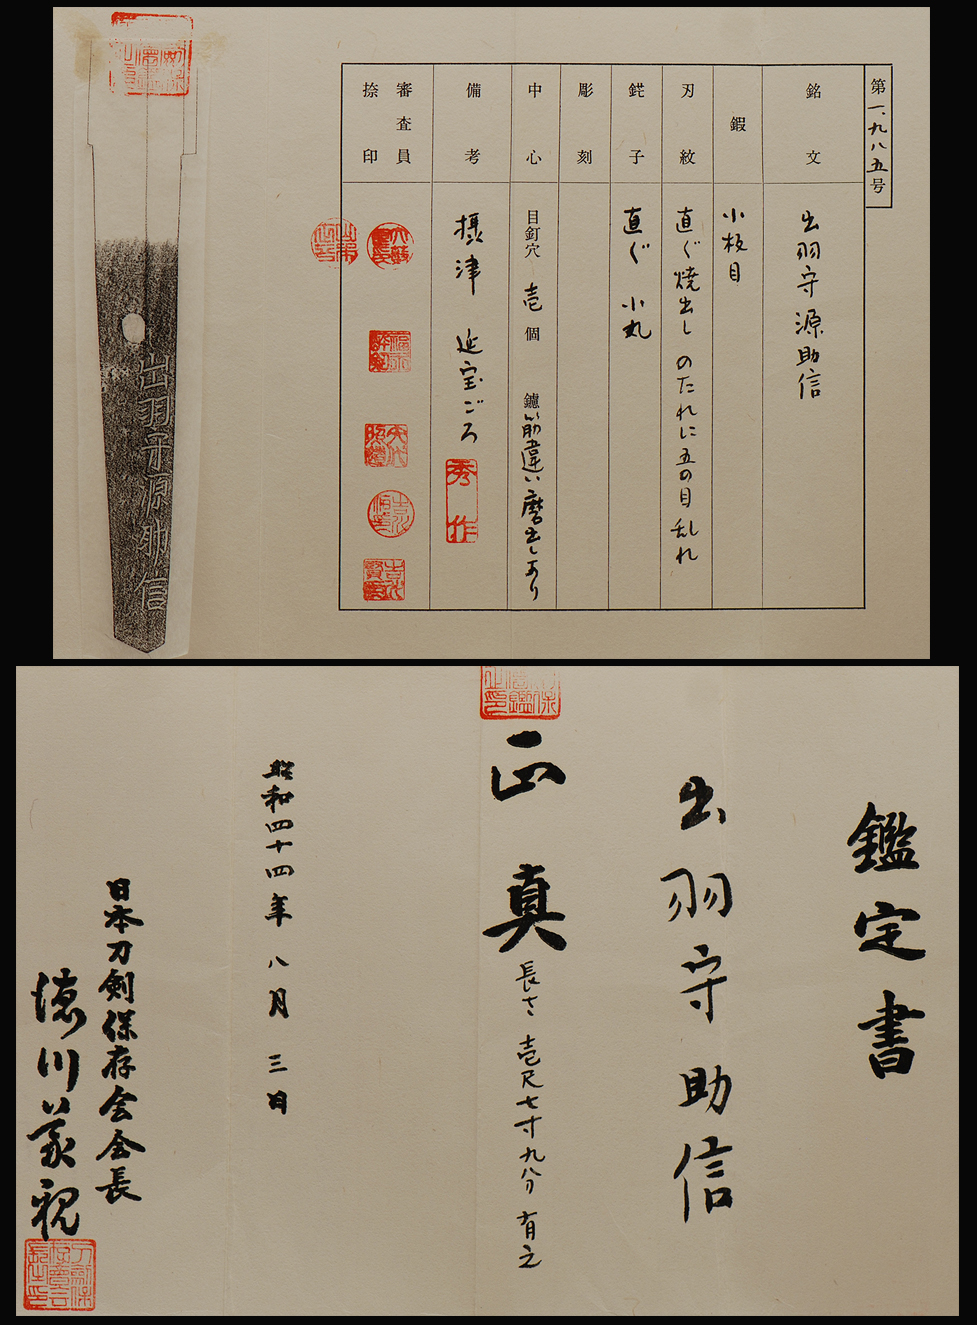 第一、九八五号
銘文
出羽守源助信
鍜
小板目
刃紋
直ぐ焼出し のたれに五の目乱れ
鋩子
直ぐ 小丸
彫刻
中心
目釘穴 壱 個 鑢 筋違い磨出しあり
備考
摂津 延宝ごろ
秀作
審査員
捺印
出羽守源助信
鑑定書
出羽守助信
正真
長さ 壱尺七寸九分 有之
昭和四十四年 八月 三日
日本刀剣保存会会長
徳川義親